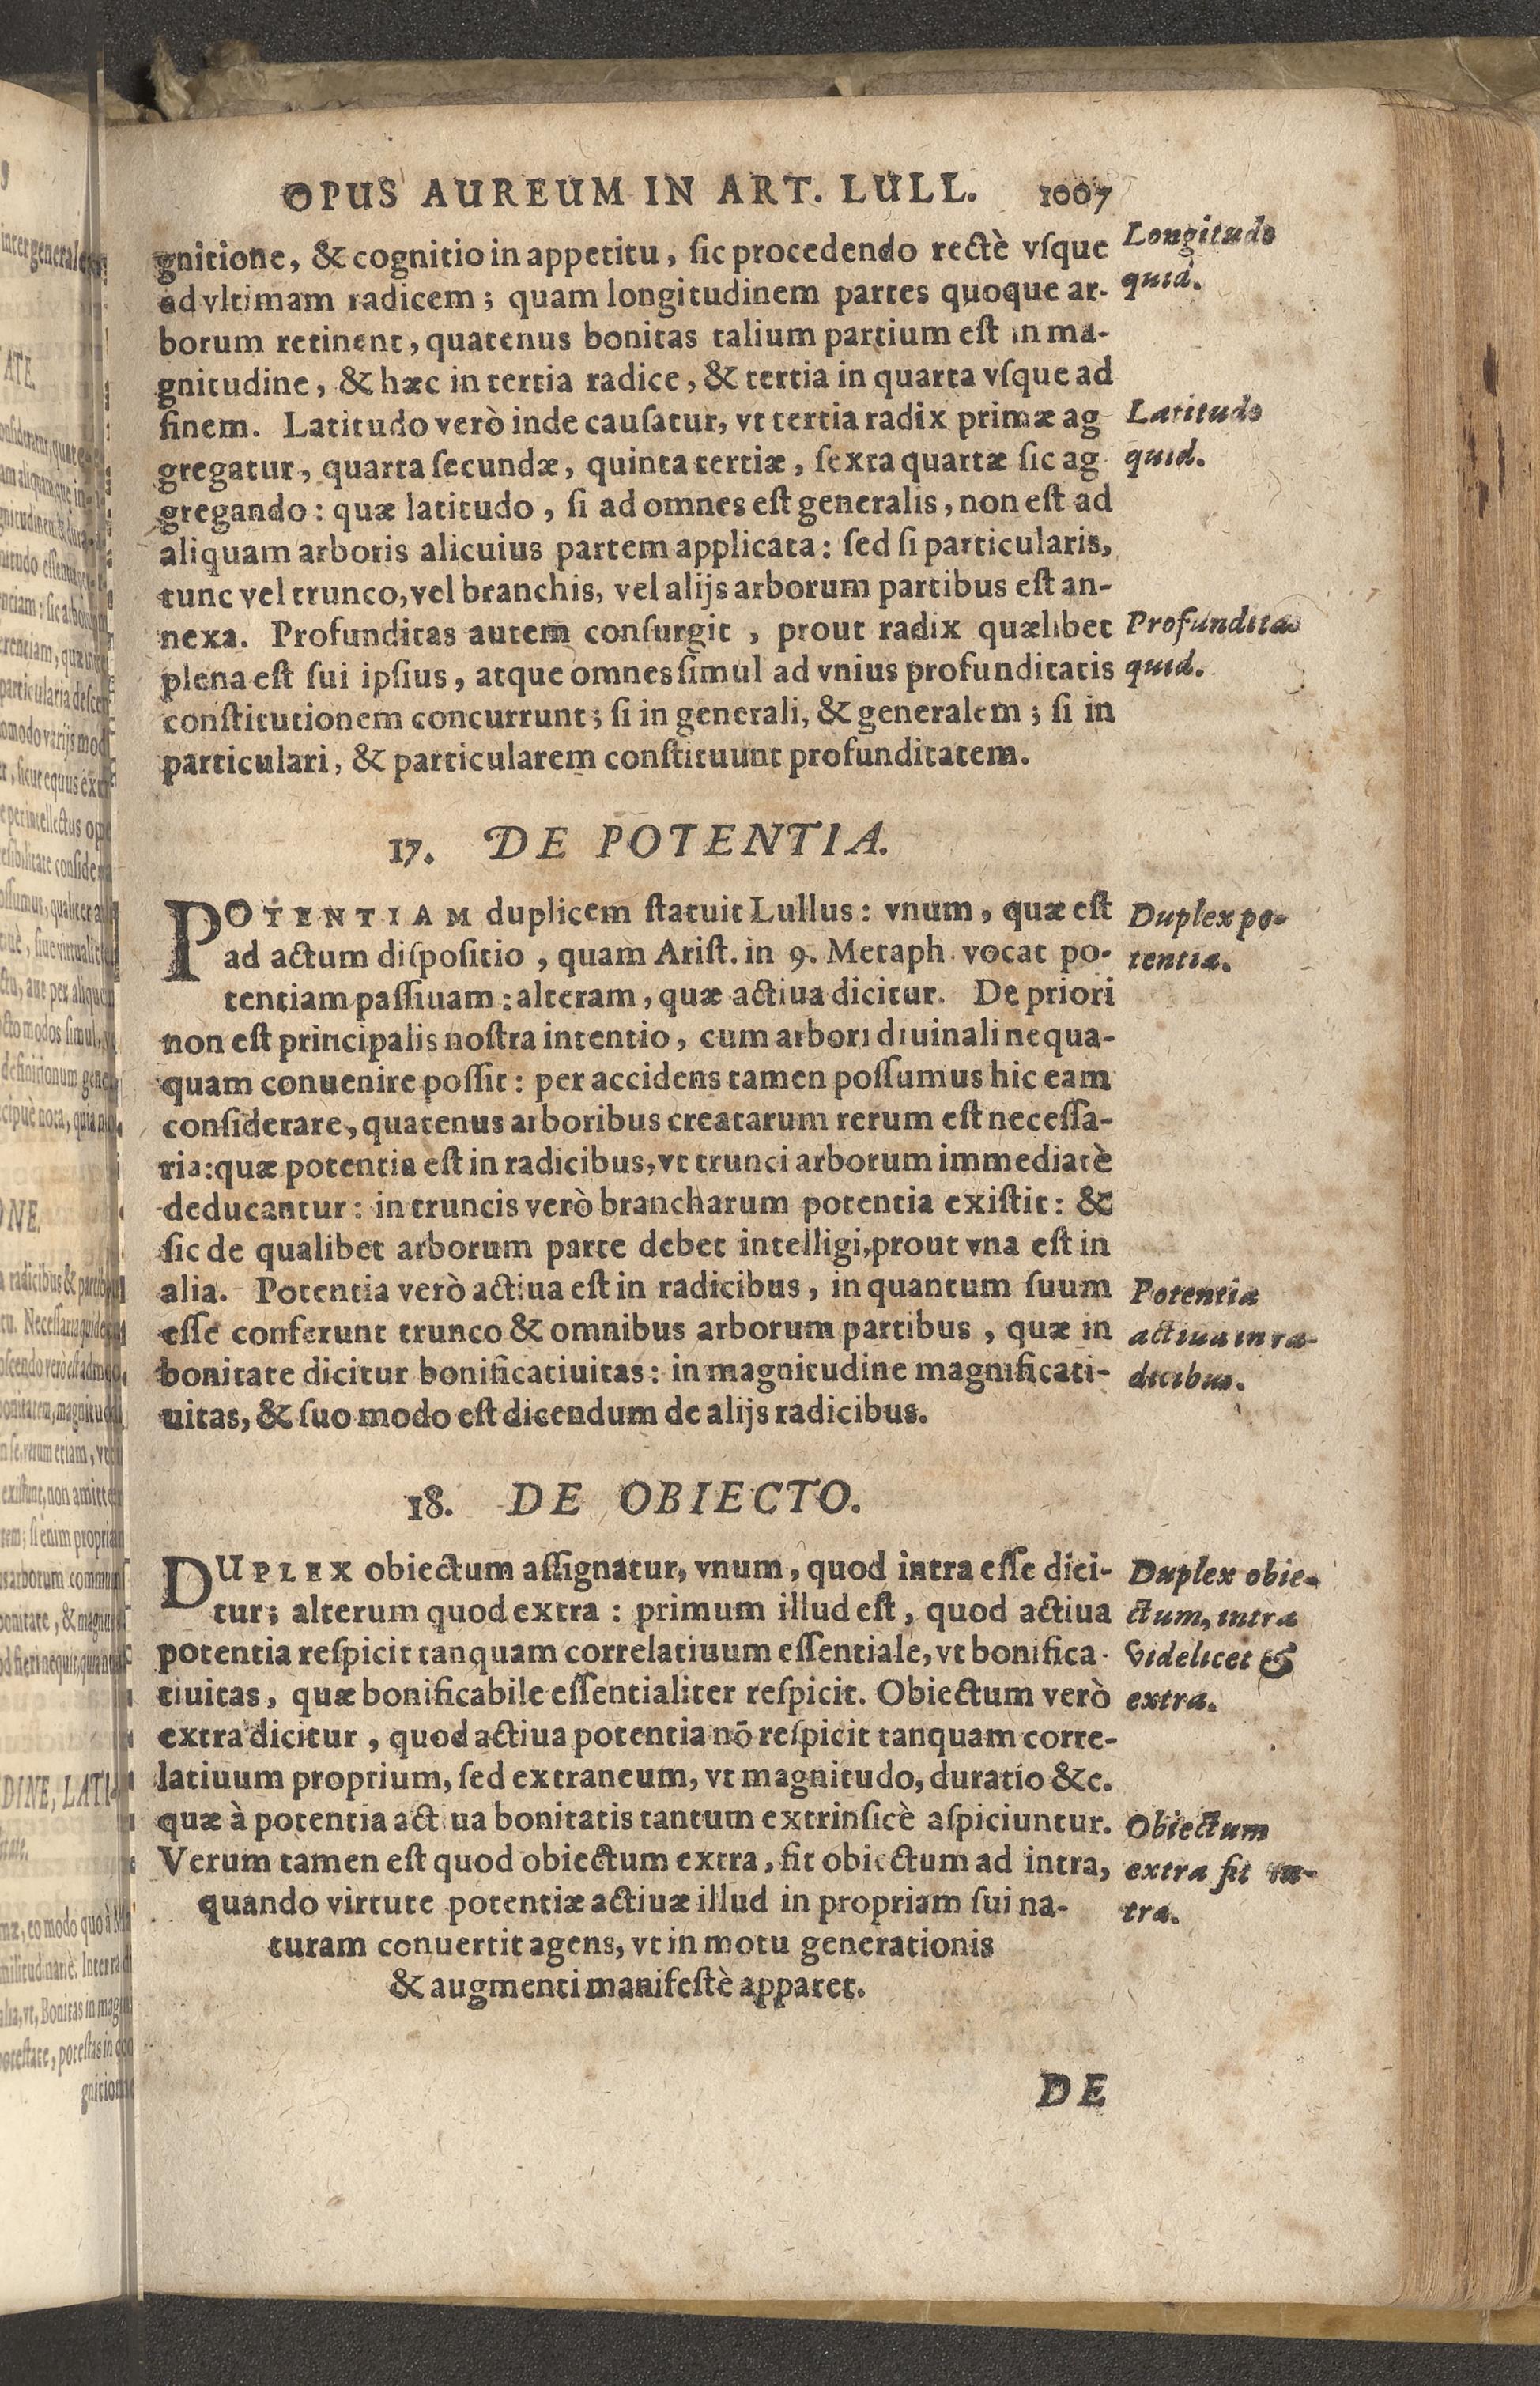 OPUS AUREUM IN ART. LULL. 1007
gnitione, & cognitio in appetitu, sic procedendo rectè vsque
ad vltimam radicem; quam longitudinem partes quoque ar-
borum retinent, quatenus bonitas talium partium est in ma-
gnitudine, & hæc in tertia radice, & tertia in quarta vsque ad
finem. Latitudo verò inde causatur, vt tertia radix primæ ag
gregatur, quarta secundæ, quinta tertiæ, sexta quartæ sic ag
gregando: quæ latitudo, si ad omnes est generalis, non est ad
aliquam arboris alicuius partem applicata: sed si particularis,
tunc vel trunco, vel branchis, vel alijs arborum partibus est an-
nexa. Profunditas autem consurgit, prout radix quælibet
plena est sui ipsius, atque omnes simul ad vnius profunditatis
constitutionem concurrunt; si in generali, & generalem; si in
particulari, & particularem constituunt profunditatem.
Longitudo
quid.
Latitudo
quid.
Profunditas
quid.
17. DE POTENTIA.
POTENTIAM duplicem statuit Lullus: vnum, quæ est
ad actum dispositio, quam Arist. in 9. Metaph. vocat po-
tentiam passiuam: alteram, quæ actiua dicitur. De priori
non est principalis nostra intentio, cum arbori diuinali nequa-
quam conuenire possit: per accidens tamen possumus hic eam
considerare, quatenus arboribus creatarum rerum est necessa-
ria: quæ potentia est in radicibus, vt trunci arborum immediatè
deducantur: in truncis verò brancharum potentia existit: &
sic de qualibet arborum parte debet intelligi, prout vna est in
alia. Potentia verò actiua est in radicibus, in quantum suum
esse conferunt trunco & omnibus arborum partibus, quæ in
bonitate dicitur bonificatiuitas: in magnitudine magnificati-
uitas, & suo modo est dicendum de alijs radicibus.
Duplex po-
tentia.
Potentia
actiua in ra-
dicibus.
18. DE OBIECTO.
DUPLEX obiectum assignatur, vnum, quod intra esse dici-
tur; alterum quod extra: primum illud est, quod actiua
potentia respicit tanquam correlatiuum essentiale, vt bonifica-
tiuitas, quæ bonificabile essentialiter respicit. Obiectum verò
extra dicitur, quod actiua potentia nō respicit tanquam corre-
latiuum proprium, sed extraneum, vt magnitudo, duratio &c.
quæ à potentia actiua bonitatis tantum extrinsicè aspiciuntur.
Verum tamen est quod obiectum extra, fit obiectum ad intra,
quando virtute potentiæ actiuæ illud in propriam sui na-
turam conuertit agens, vt in motu generationis
& augmenti manifestè apparet.
Duplex obie-
ctum, intra
videlicet &
extra.
Obiectum
extra fit in-
tra.
DE